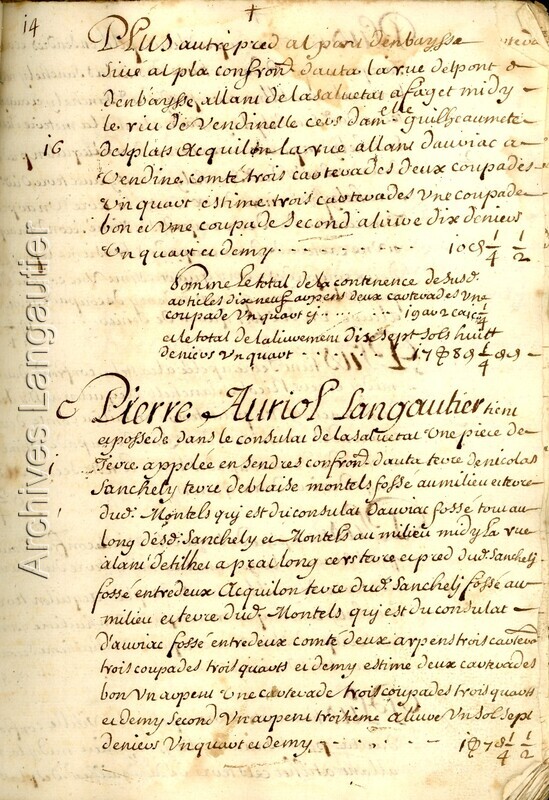 14
+
Plus autre pred al part denbaysse
sive al pla confron.t dauta la rue delpont d
denbaysse allant de lasaluetat afaget midy
le riu de Vendinelle cers dam.elle guilheaumete
16 desplats Acquilon la rue allant dauriac a
Vendine comte trois cartevades deux coupades
Un quart estime trois cartevades Une coupade
bon et Une coupade Second alivre dix deniers
Un quart et demy 10 d 1/4 1/2
Somme le total de la contenence de susd.
articles dix neuf arpens deux cartevades Une
coupade Un quart
et le total de lalivrement dix sept sols huitt
deniers Un quart
C Pierre Auriol Langautier tient
et possede dans le consulat de lasaluetat Une piece de
1 Terre appelée en Sendres confron.t dauta terre de nicolas
Sanchely terre de blaise montels fossé au milieu et terre
dud. Montels quj est du consulat dauriac fossé tout au
long desd. Sanchely et Montels au milieu midy La rue
alant detilhet a prat long cers terre et pred dud. Sanchelj
fossé entre deux Acquilon terre dud. Sanchelj fossé au
milieu et terre dud. Montels quj est du consulat
dauriac fossé entredeux comte deux arpens trois cartevades
trois coupades trois quarts et demy estime deux cartevades
bon Un arpent Une cartevade trois coupades trois quarts
et demy Second Un arpent troisieme alivre Un sol sept
deniers Un quart et demy 1 s 7 d 1/4 1/2
Archives Langautier